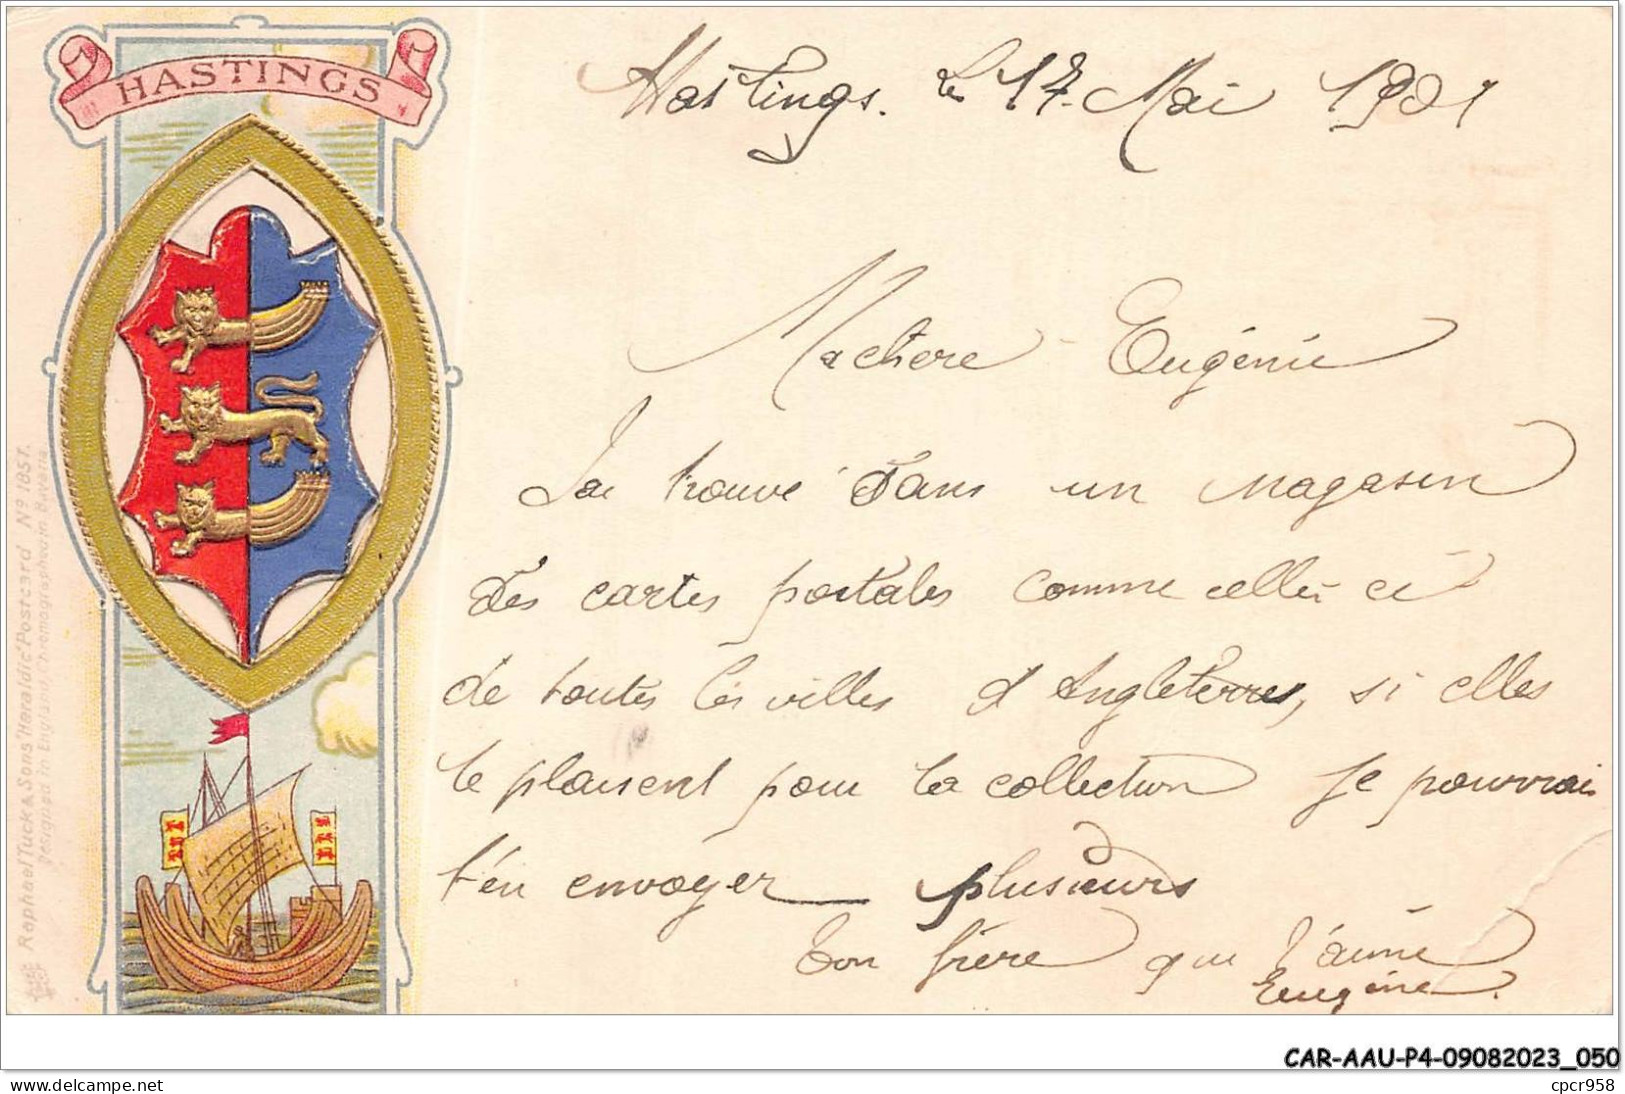 HASTINGS
Hastings. Le 17 Mai 1901
Ma chere Eugénie
J'ai trouvé dans un magasin
des cartes postales comme celles ci
de toutes les villes d'Angleterre, si elles
te plaisent pour ta collection je pourrai
t'en envoyer plusieurs
Ton frère qui t'aime
Eugène.
Raphael Tuck & Sons' "Heraldic" Postcard Nº 1857.
Designed in England, chromographed in Bavaria.
CAR-AAU-P4-09082023_050
cpcr958